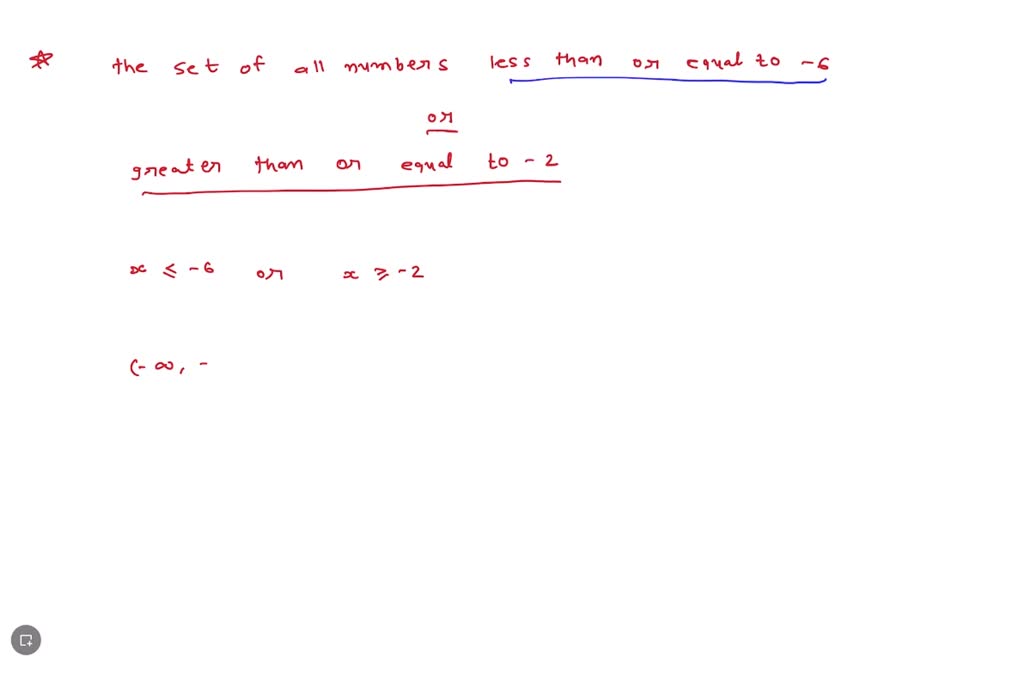 the set of all numbers less than or equal to -6
or
greater than or equal to -2
x ≤ -6 or x ≥ -2
(-∞, -